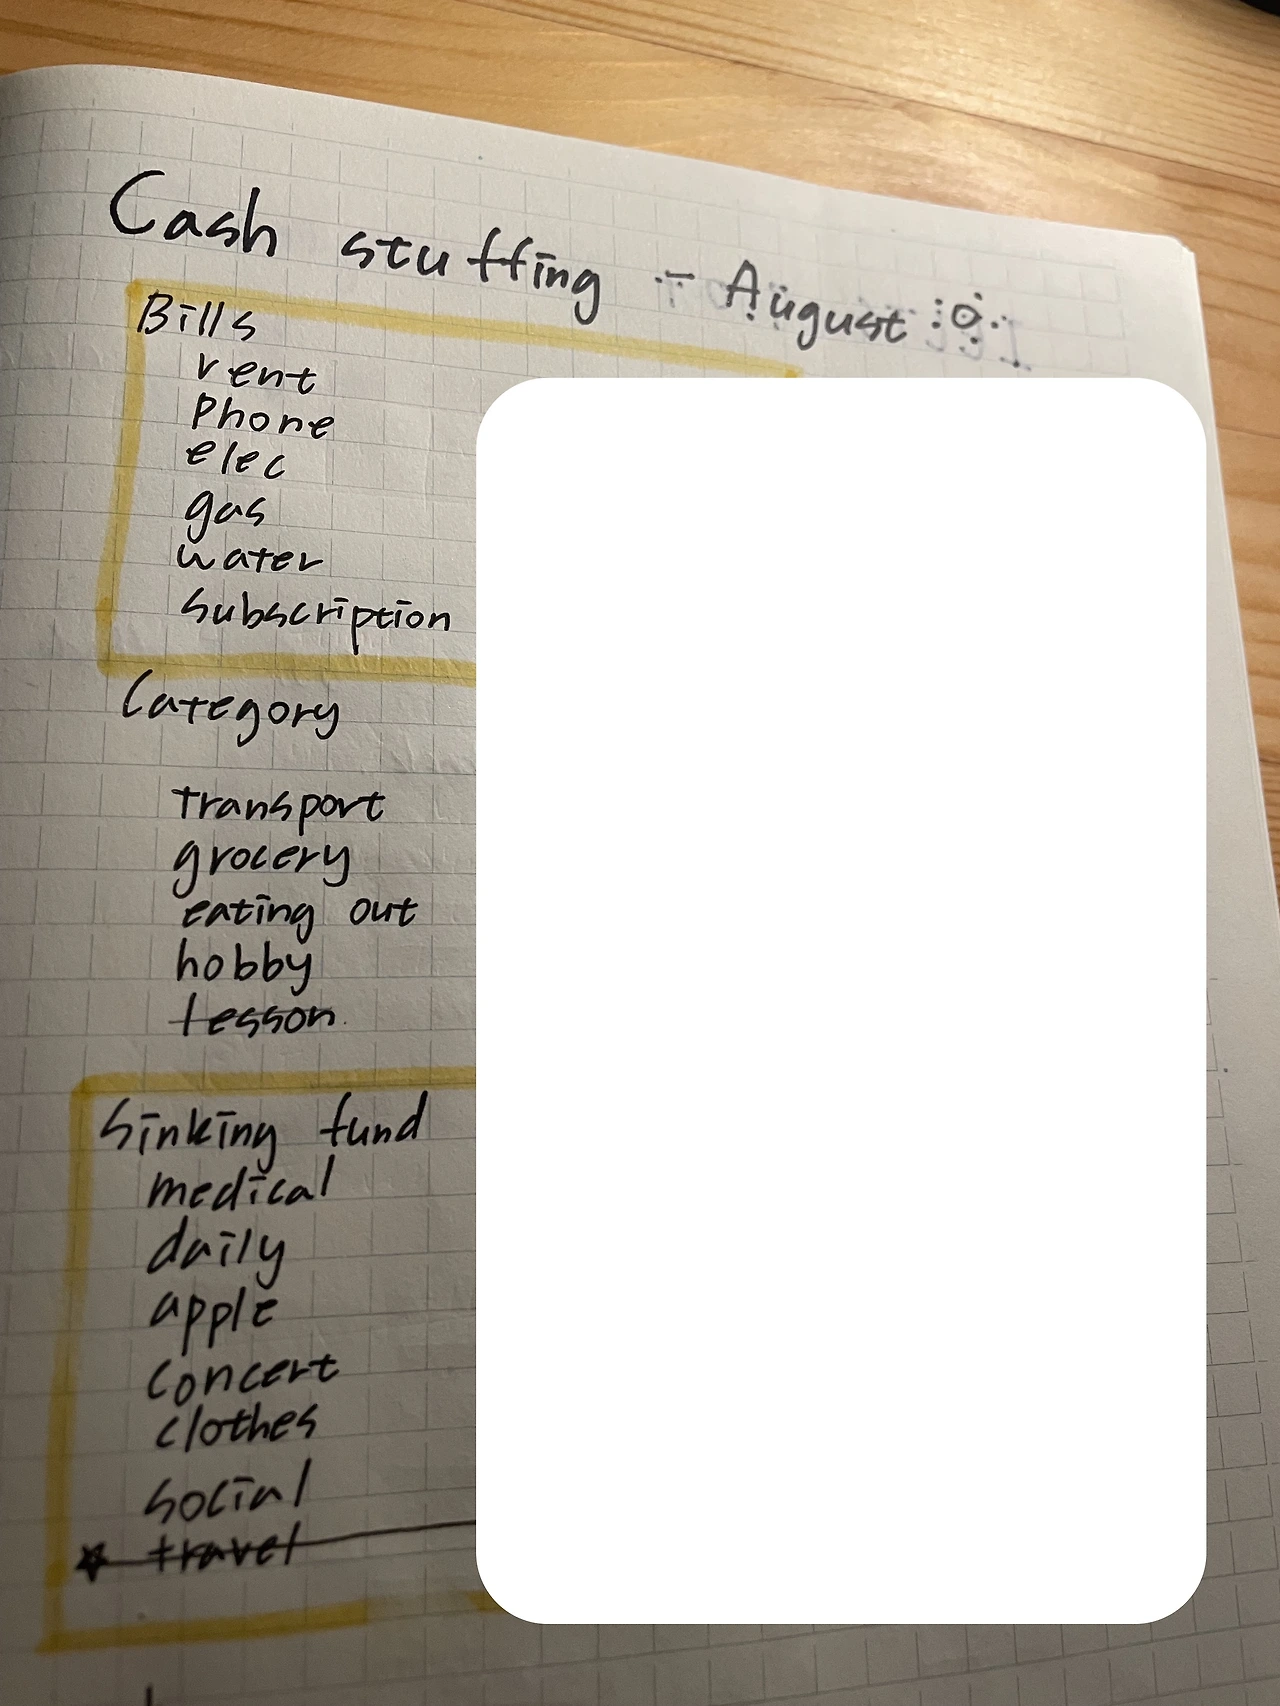 Cash stuffing - August
Bills
rent
phone
elec
gas
water
subscription
Category
transport
grocery
eating out
hobby
lesson
Sinking fund
medical
daily
apple
concert
clothes
social
travel